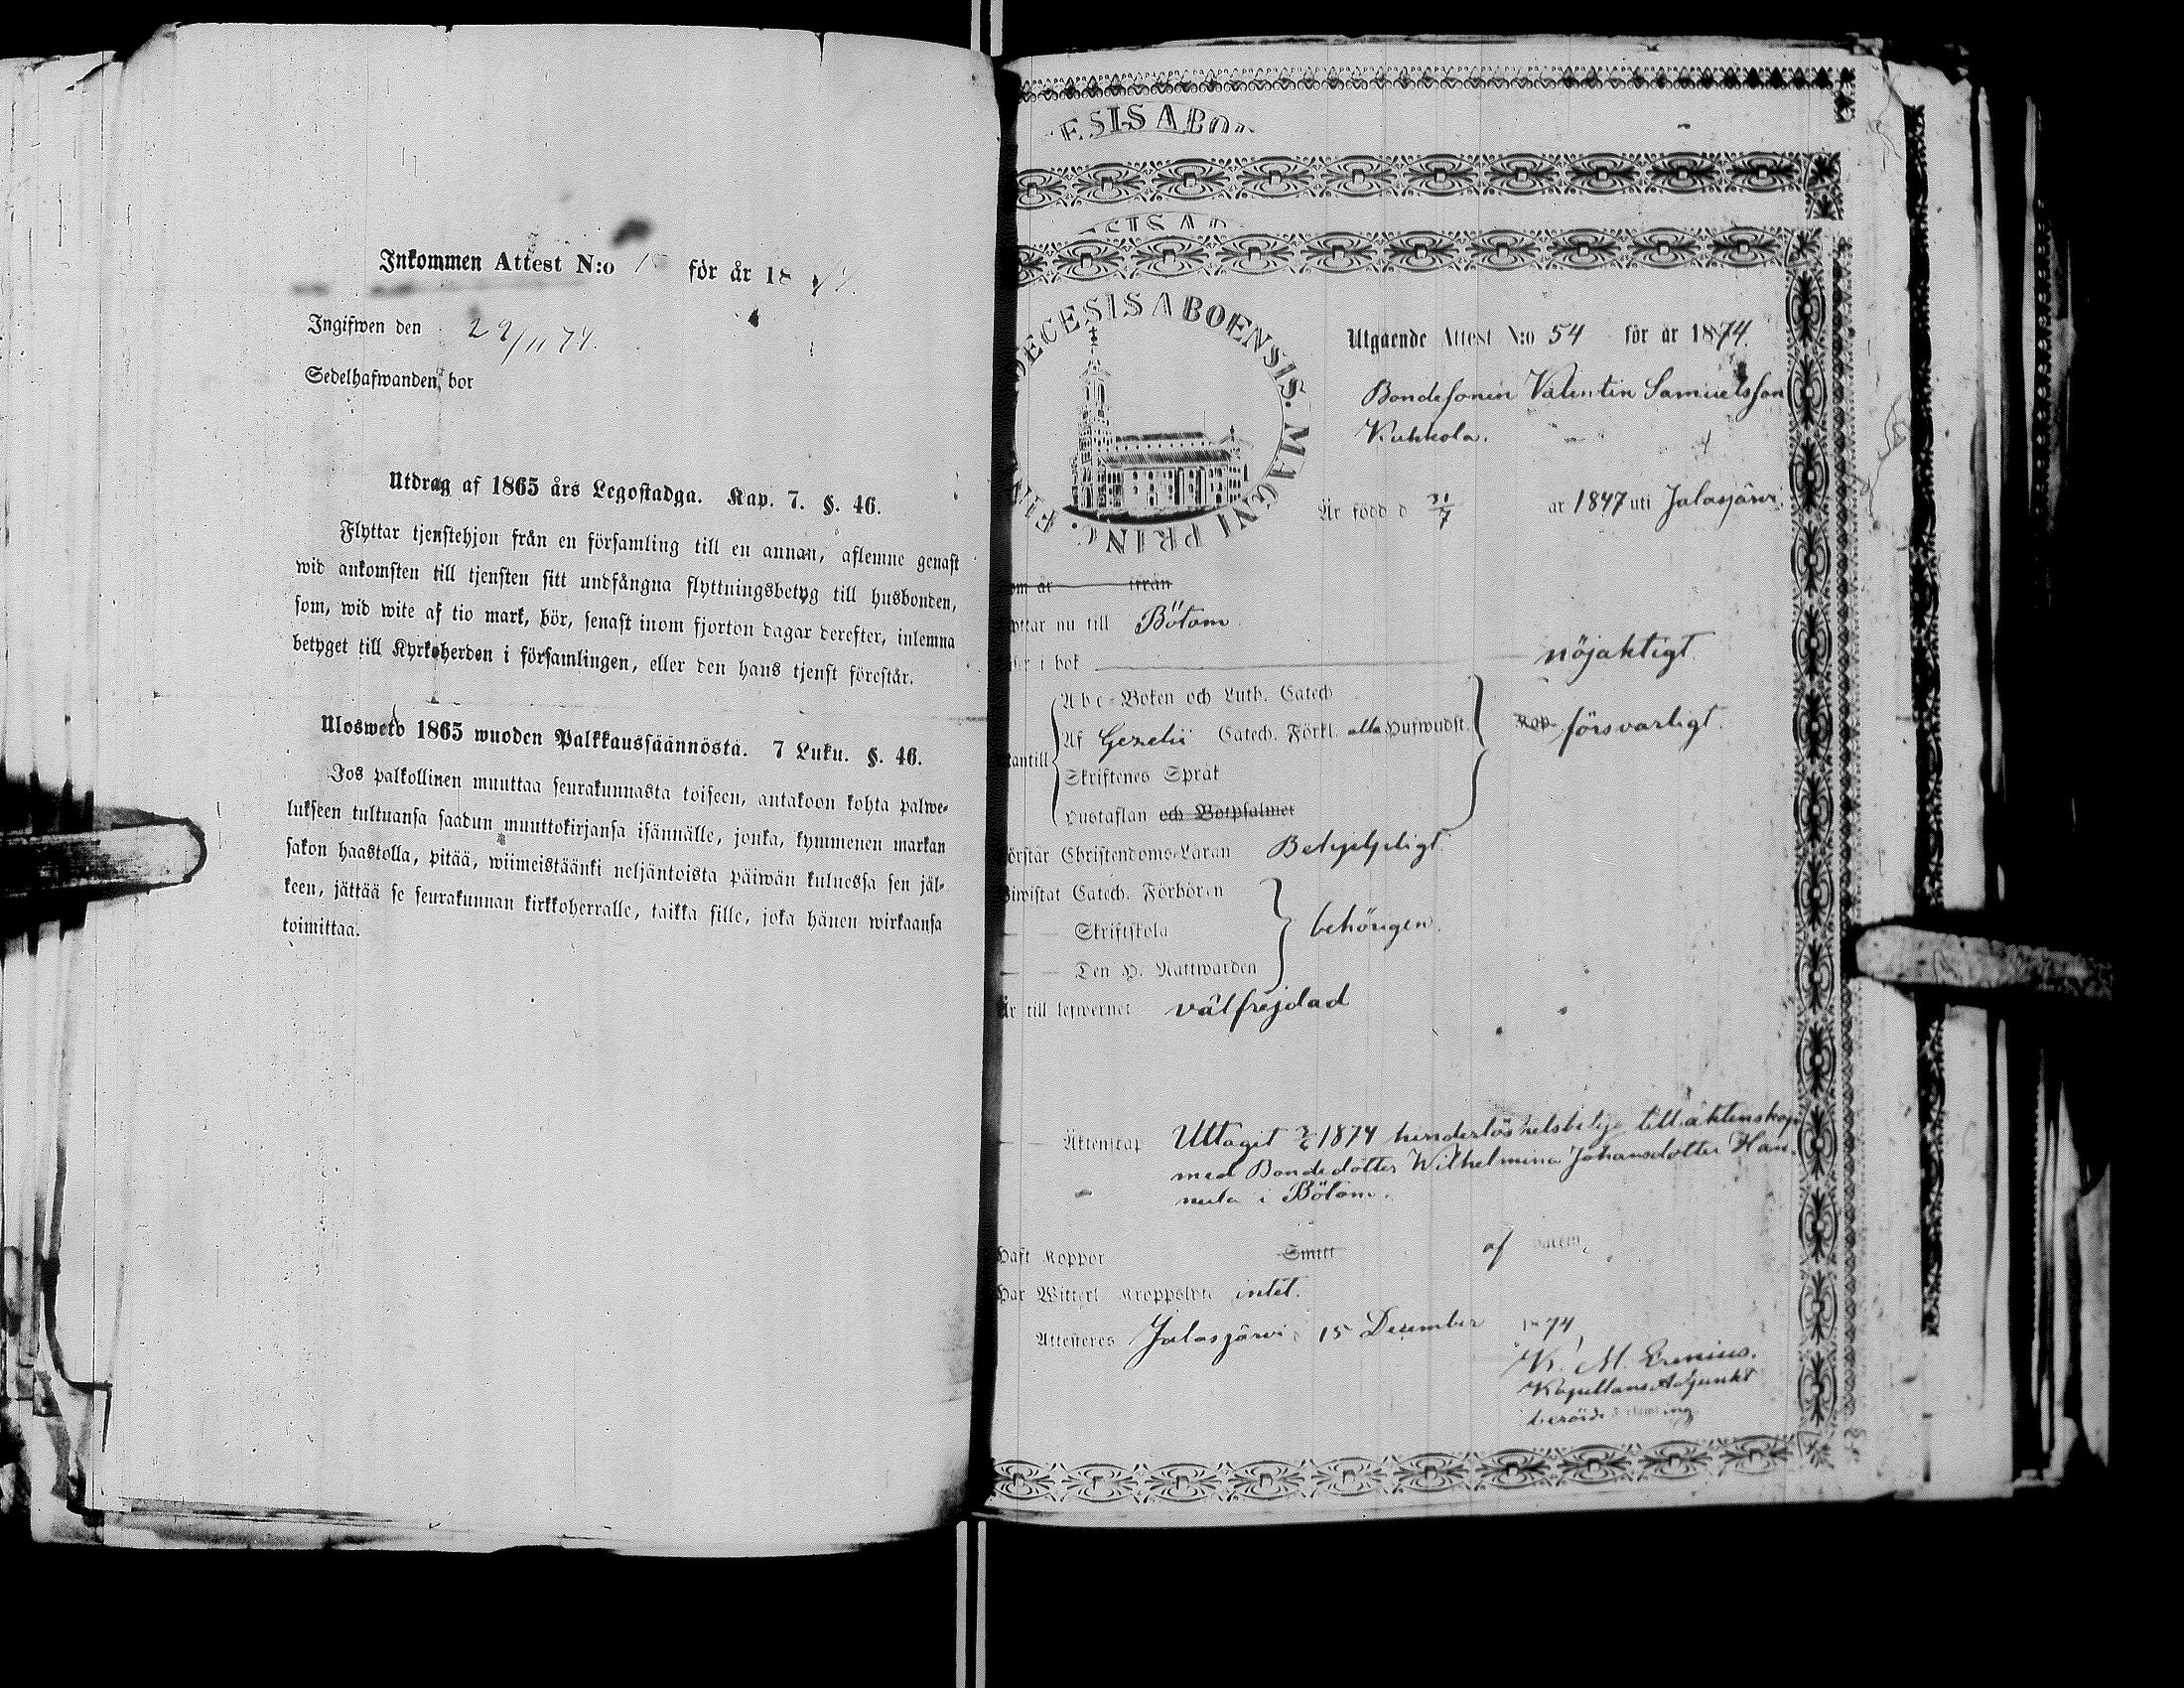 Inkommen Attest N:o 15 för år 18
Ingifwen den 29/11 74.
Sedelhafwanden bor
Utdrag af 1865 års Legostadga. Kap. 7. §. 46.
Flyttar tjenstehjon från en församling till en annan, aflemne genast
wid ankomsten till tjensten sitt undfångna flyttningsbetyg till husbonden,
som, wid wite af tio mark, bör, senast inom fjorton dagar derefter, inlemna
betyget till Kyrkoherden i församlingen, eller den hans tjenst förestår.
Ulosweto 1865 wuoden Palkkaussäännöstä. 7 Luku. §. 46.
Jos palkollinen muuttaa seurakunnasta toiseen, antakoon kohta palwe-
lukseen tultuansa saadun muuttokirjansa isännälle, jonka, kymmenen markan
sakon haastolla, pitää, wiimeistäänki neljäntoista päiwän kuluessa sen jäl-
keen, jättää se seurakunnan kirkkoherralle, taikka sille, joka hänen wirkaansa
toimittaa.
ESIS ABO
DECESIS ABOENSIS. MAGNI PRINC. FINL
Utgaende Attest N:o 54 för år 1874.
Bondesonen Valentin Samuelsson
Kuhkola.
Är född d 31/7 år 1847 uti Jalasjärvi
om år ifrån
yttar nu till Bötom.
ser i bok nöjaktigt
Abc-Boken och Luth. Catech
Af Gezelii Catech. Förkl. alla Hufwudst.
Kap försvarligt.
antill
Skriftenes Språk
Hustaflan och Botpsalmer
örstår Christendoms-Läran Behjelpligt
iwistat Catech. Förhören
— — Skriftskola behörigen.
— — Den H. Nattwarden
Är till lefwernet välfrejdad
— — Äktenskap Uttagit 7/6 1874 hinderlöshetsbetyg till äktenskap
med Bondedotter Wilhelmina Johansdotter Han-
nula i Bötom.
Haft Koppor Smitt af
Har Witterl. Kroppslyte intet.
Attesteres Jalasjärvi 15 December 1874
K. M.
Kapellans Adjunkt